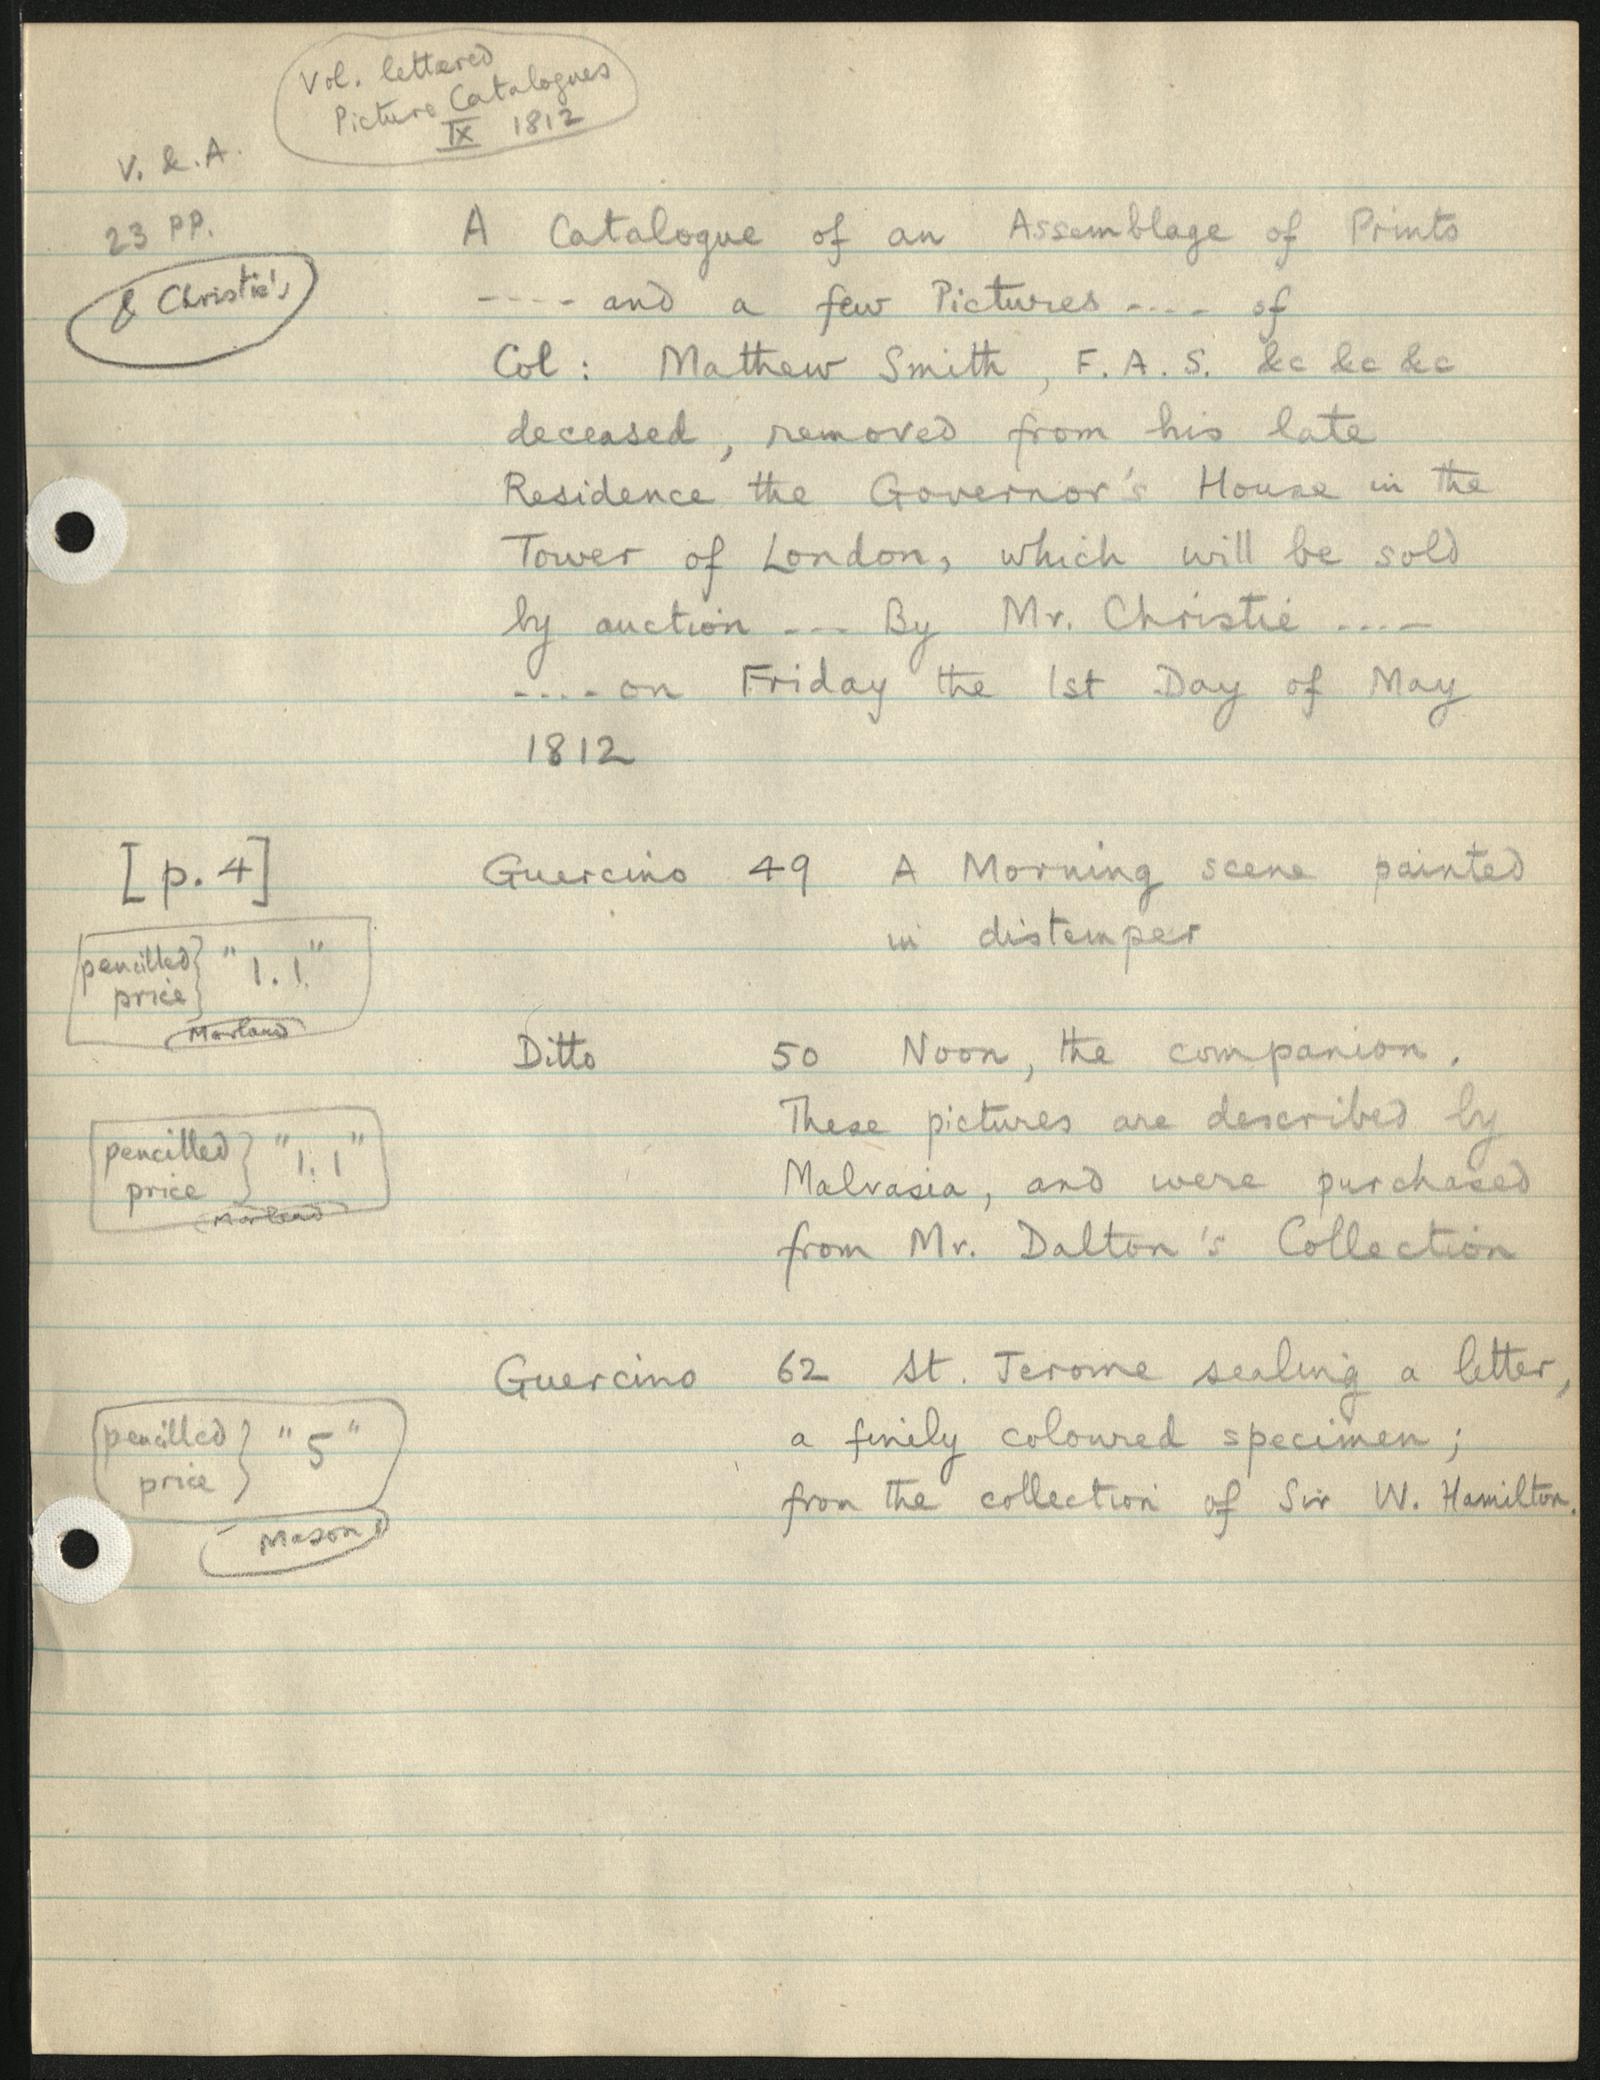 Vol. lettered
Picture Catalogues
IX 1812
V. & A.
23 pp.
& Christie's
A Catalogue of an Assemblage of Prints
---- and a few Pictures ---- of
Col: Mathew Smith, F.A.S. &c &c &c
deceased, removed from his late
Residence the Governor's House in the
Tower of London, which will be sold
by auction --- By Mr. Christie ----
---- on Friday the 1st Day of May
1812
[p. 4] Guercino 49 A Morning scene painted
in distemper
pencilled } "1.1"
price
Morland
Ditto 50 Noon, the companion.
These pictures are described by
Malvasia, and were purchased
from Mr. Dalton's Collection
pencilled } "1.1"
price
Morland
Guercino 62 St. Jerome sealing a letter,
a finely coloured specimen;
from the collection of Sir W. Hamilton.
pencilled } "5"
price
Mason